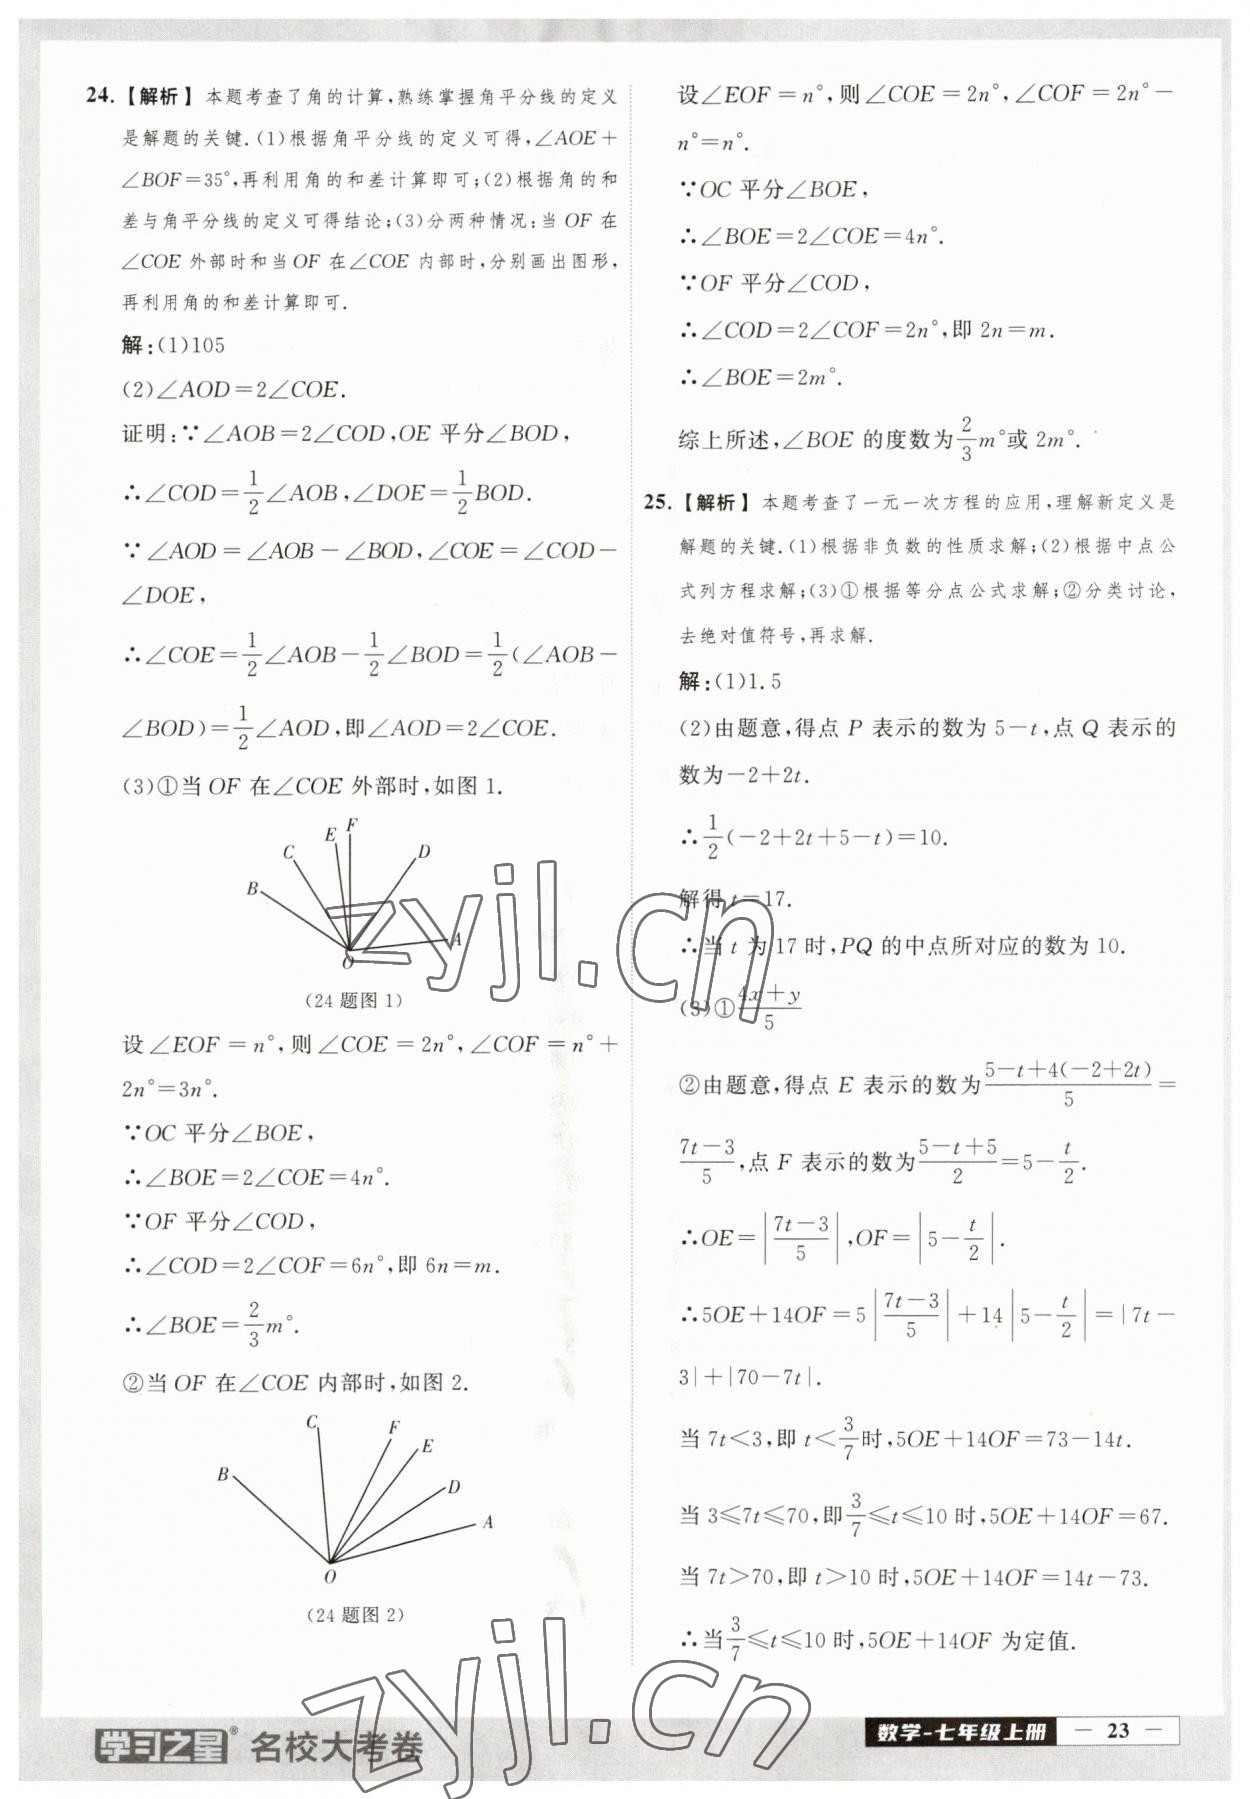 24. 【解析】 本题考查了角的计算,熟练掌握角平分线的定义
是解题的关键.(1)根据角平分线的定义可得,∠AOE+
∠BOF=35°,再利用角的和差计算即可;(2)根据角的和
差与角平分线的定义可得结论;(3)分两种情况:当 OF 在
∠COE 外部时和当 OF 在∠COE 内部时,分别画出图形,
再利用角的和差计算即可.
解:(1)105
(2)∠AOD=2∠COE.
证明:∵∠AOB=2∠COD,OE 平分∠BOD,
∴∠COD=1/2∠AOB,∠DOE=1/2BOD.
∵∠AOD=∠AOB-∠BOD,∠COE=∠COD-
∠DOE,
∴∠COE=1/2∠AOB-1/2∠BOD=1/2(∠AOB-
∠BOD)=1/2∠AOD,即∠AOD=2∠COE.
(3)①当 OF 在∠COE 外部时,如图 1.
F
E
C
D
B
A
O
(24 题图 1)
设∠EOF=n°,则∠COE=2n°,∠COF=n°+
2n°=3n°.
∵OC 平分∠BOE,
∴∠BOE=2∠COE=4n°.
∵OF 平分∠COD,
∴∠COD=2∠COF=6n°,即 6n=m.
∴∠BOE=2/3m°.
②当 OF 在∠COE 内部时,如图 2.
C
F
E
B
D
A
O
(24 题图 2)
设∠EOF=n°,则∠COE=2n°,∠COF=2n°-
n°=n°.
∵OC 平分∠BOE,
∴∠BOE=2∠COE=4n°.
∵OF 平分∠COD,
∴∠COD=2∠COF=2n°,即 2n=m.
∴∠BOE=2m°.
综上所述,∠BOE 的度数为2/3m°或 2m°.
25. 【解析】 本题考查了一元一次方程的应用,理解新定义是
解题的关键.(1)根据非负数的性质求解;(2)根据中点公
式列方程求解;(3)①根据等分点公式求解;②分类讨论,
去绝对值符号,再求解.
解:(1)1.5
(2)由题意,得点 P 表示的数为 5-t,点 Q 表示的
数为-2+2t.
∴1/2(-2+2t+5-t)=10.
解得 t=17.
∴当 t 为 17 时,PQ 的中点所对应的数为 10.
(3)①(4x+y)/5
②由题意,得点 E 表示的数为(5-t+4(-2+2t))/5=
(7t-3)/5,点 F 表示的数为(5-t+5)/2=5-t/2.
∴OE=|(7t-3)/5|,OF=|5-t/2|.
∴5OE+14OF=5|(7t-3)/5|+14|5-t/2|=|7t-
3|+|70-7t|.
当 7t<3,即 t<3/7时,5OE+14OF=73-14t.
当 3≤7t≤70,即3/7≤t≤10 时,5OE+14OF=67.
当 7t>70,即 t>10 时,5OE+14OF=14t-73.
∴当3/7≤t≤10 时,5OE+14OF 为定值.
zyjl.cn
zyjl.cn
学习之星® 名校大考卷
数学-七年级上册 — 23 —